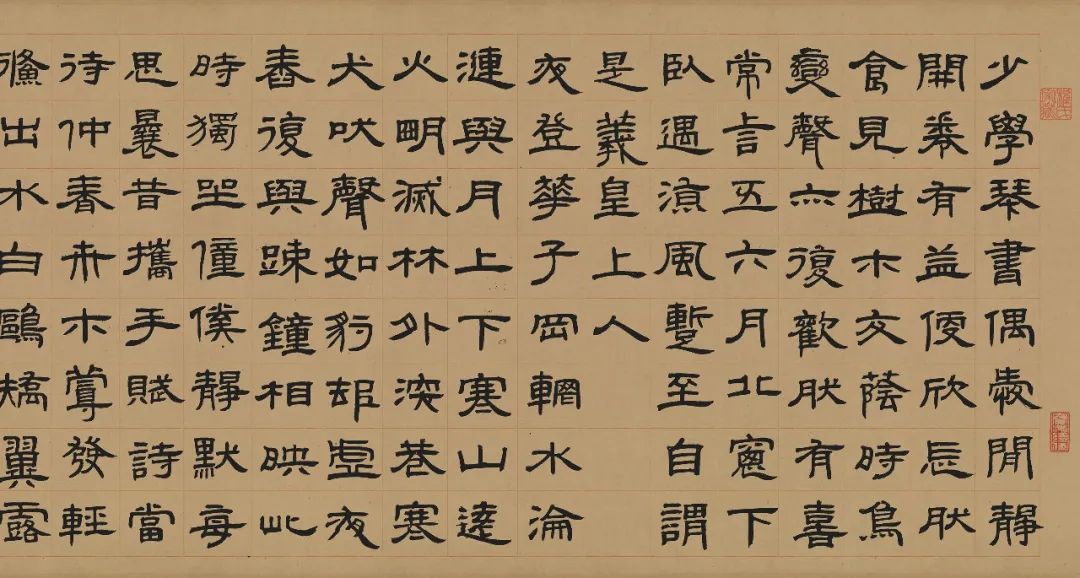 少學琴書偶愛閒靜
開卷有益便欣肰
食見樹木交蔭時鳥
變聲亦復歡肰有喜
常言五六月北窗下
臥遇涼風暫至自謂
是羲皇上人
夜登華子岡輞水淪
漣與月上下寒山遠
火明滅林外深巷寒
犬吠聲如豹邨虛夜
舂復與疎鐘相映此
時獨坐僮僕靜默每
思曩昔攜手賦詩當
待仲春卉木蕚發輕
鯈出水白鷗矯翼露